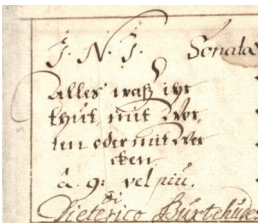 J. N. J. Sonata
Alles waß ihr
thut, mit Wor,
ten oder mit Wer
cken.
â. 9. vel piu.
di
Dieterico Buxtehude